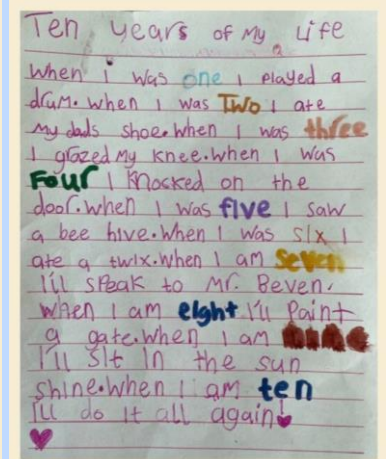 Ten years of My Life
When I was one I played a
drum. when I was Two I ate
My dads shoe. When I was three
I grazed My knee. when I was
Four I knocked on the
door. when I was five I saw
a bee hive. When I was six I
ate a twix. when I am seven
I'll speak to Mr. Beven.
when I am eight I'll Paint
a gate. when I am nine
I'll sit in the sun
shine. when I am ten
I'll do it all again!